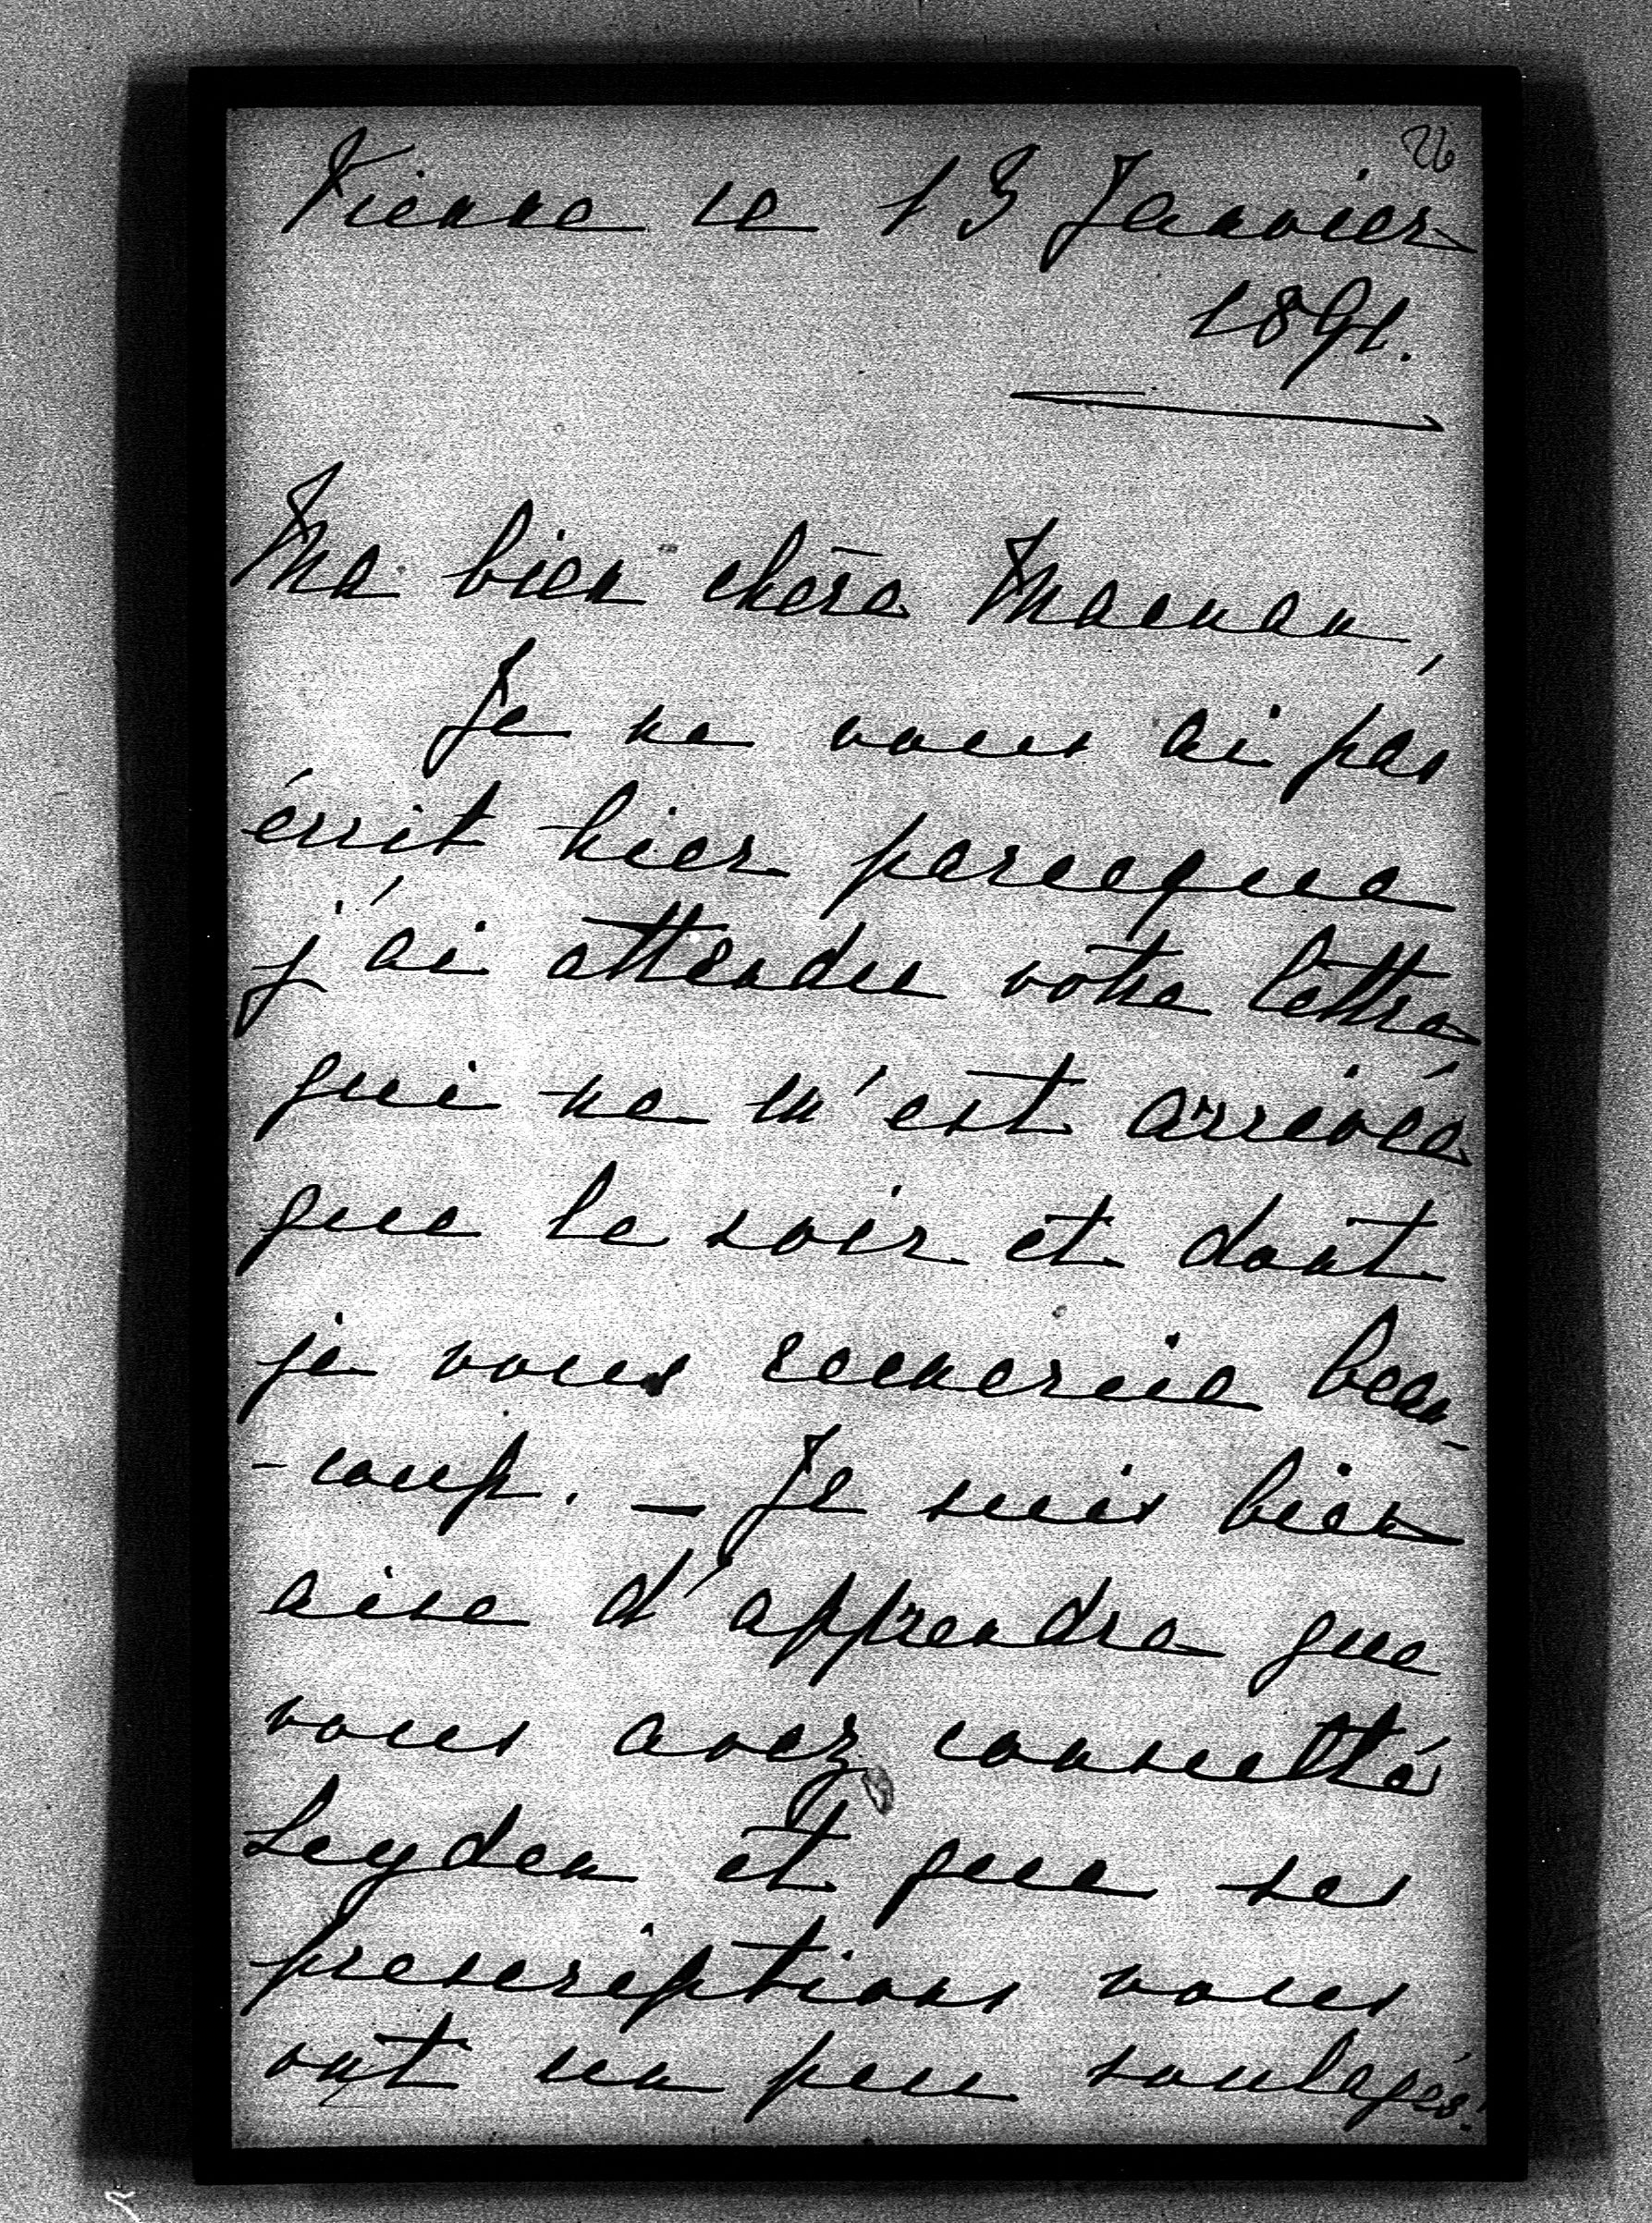 26
Vienne le 13 Janvier
1891.
Ma bien chère Maman,
Je ne vous ai pas
écrit hier parceque
j'ai attendu votre lettre
qui ne m'est arrivée
que le soir et dont
je vous remercie beau-
-coup. — Je suis bien
aise d'apprendre que
vous avez consulté
Leyden et que ses
prescriptions vous
ont un peu soulagée.